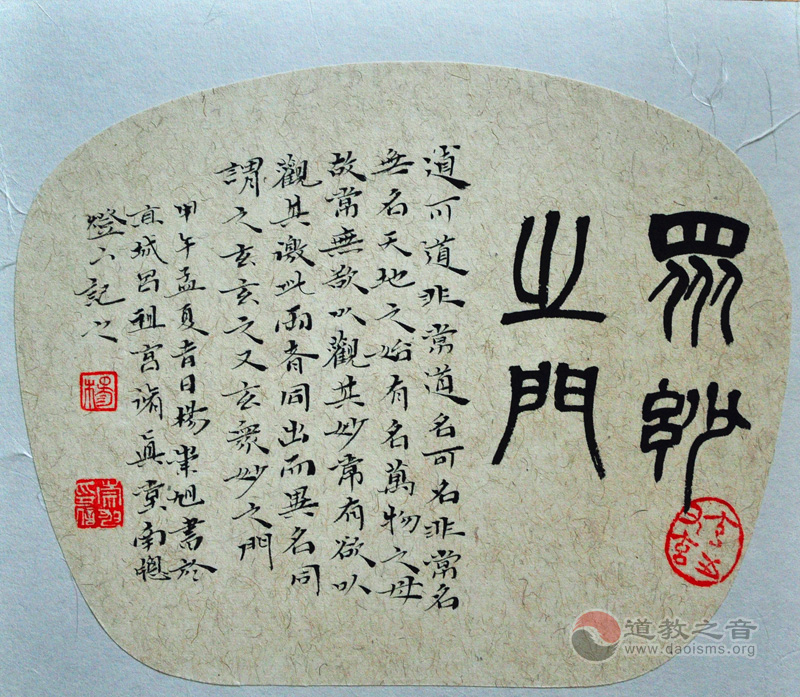 眾妙
之門
道可道非常道名可名非常名
無名天地之始有名萬物之母
故常無欲以觀其妙常有欲以
觀其徼此兩者同出而異名同
謂之玄玄之又玄衆妙之門
甲午孟夏吉日楊崇旭書於
京城呂祖宮誦真黄南聰
燈下記之
道教之音
www.daoisms.org